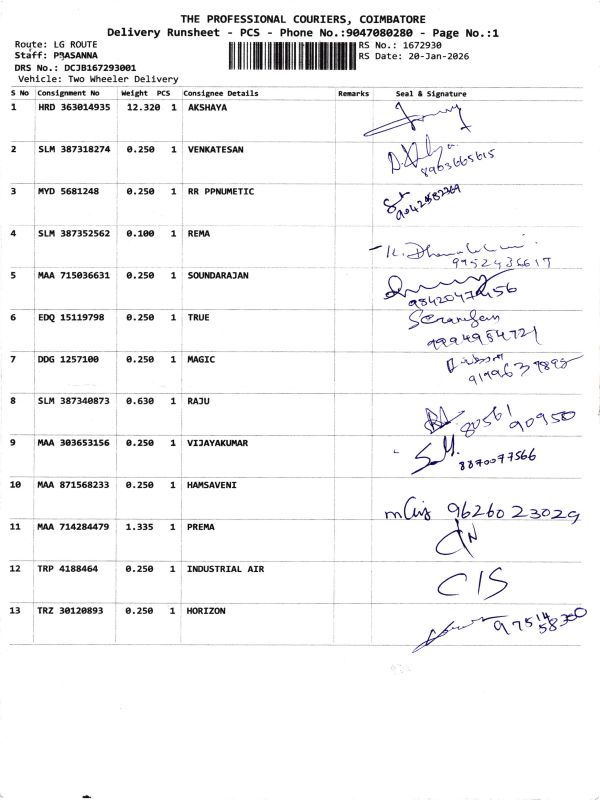 THE PROFESSIONAL COURIERS, COIMBATORE
Delivery Runsheet - PCS - Phone No.:9047080280 - Page No.:1
Route: LG ROUTE
Staff: PRASANNA
DRS No.: DCJB167293001
Vehicle: Two Wheeler Delivery
RS No.: 1672930
RS Date: 20-Jan-2026
S No Consignment No Weight PCS Consignee Details Remarks Seal & Signature
1 HRD 363014935 12.320 1 AKSHAYA
2 SLM 387318274 0.250 1 VENKATESAN
8903665615
3 MYD 5681248 0.250 1 RR PPNUMETIC
4 SLM 387352562 0.100 1 REMA
9952436617
5 MAA 715036631 0.250 1 SOUNDARAJAN
6 EDQ 15119798 0.250 1 TRUE
9994954721
7 DDG 1257100 0.250 1 MAGIC
8 SLM 387340873 0.630 1 RAJU
80561 90950
9 MAA 303653156 0.250 1 VIJAYAKUMAR
S.M.
8870077566
10 MAA 871568233 0.250 1 HAMSAVENI
9626023029
11 MAA 714284479 1.335 1 PREMA
12 TRP 4188464 0.250 1 INDUSTRIAL AIR
CIS
13 TRZ 30120893 0.250 1 HORIZON